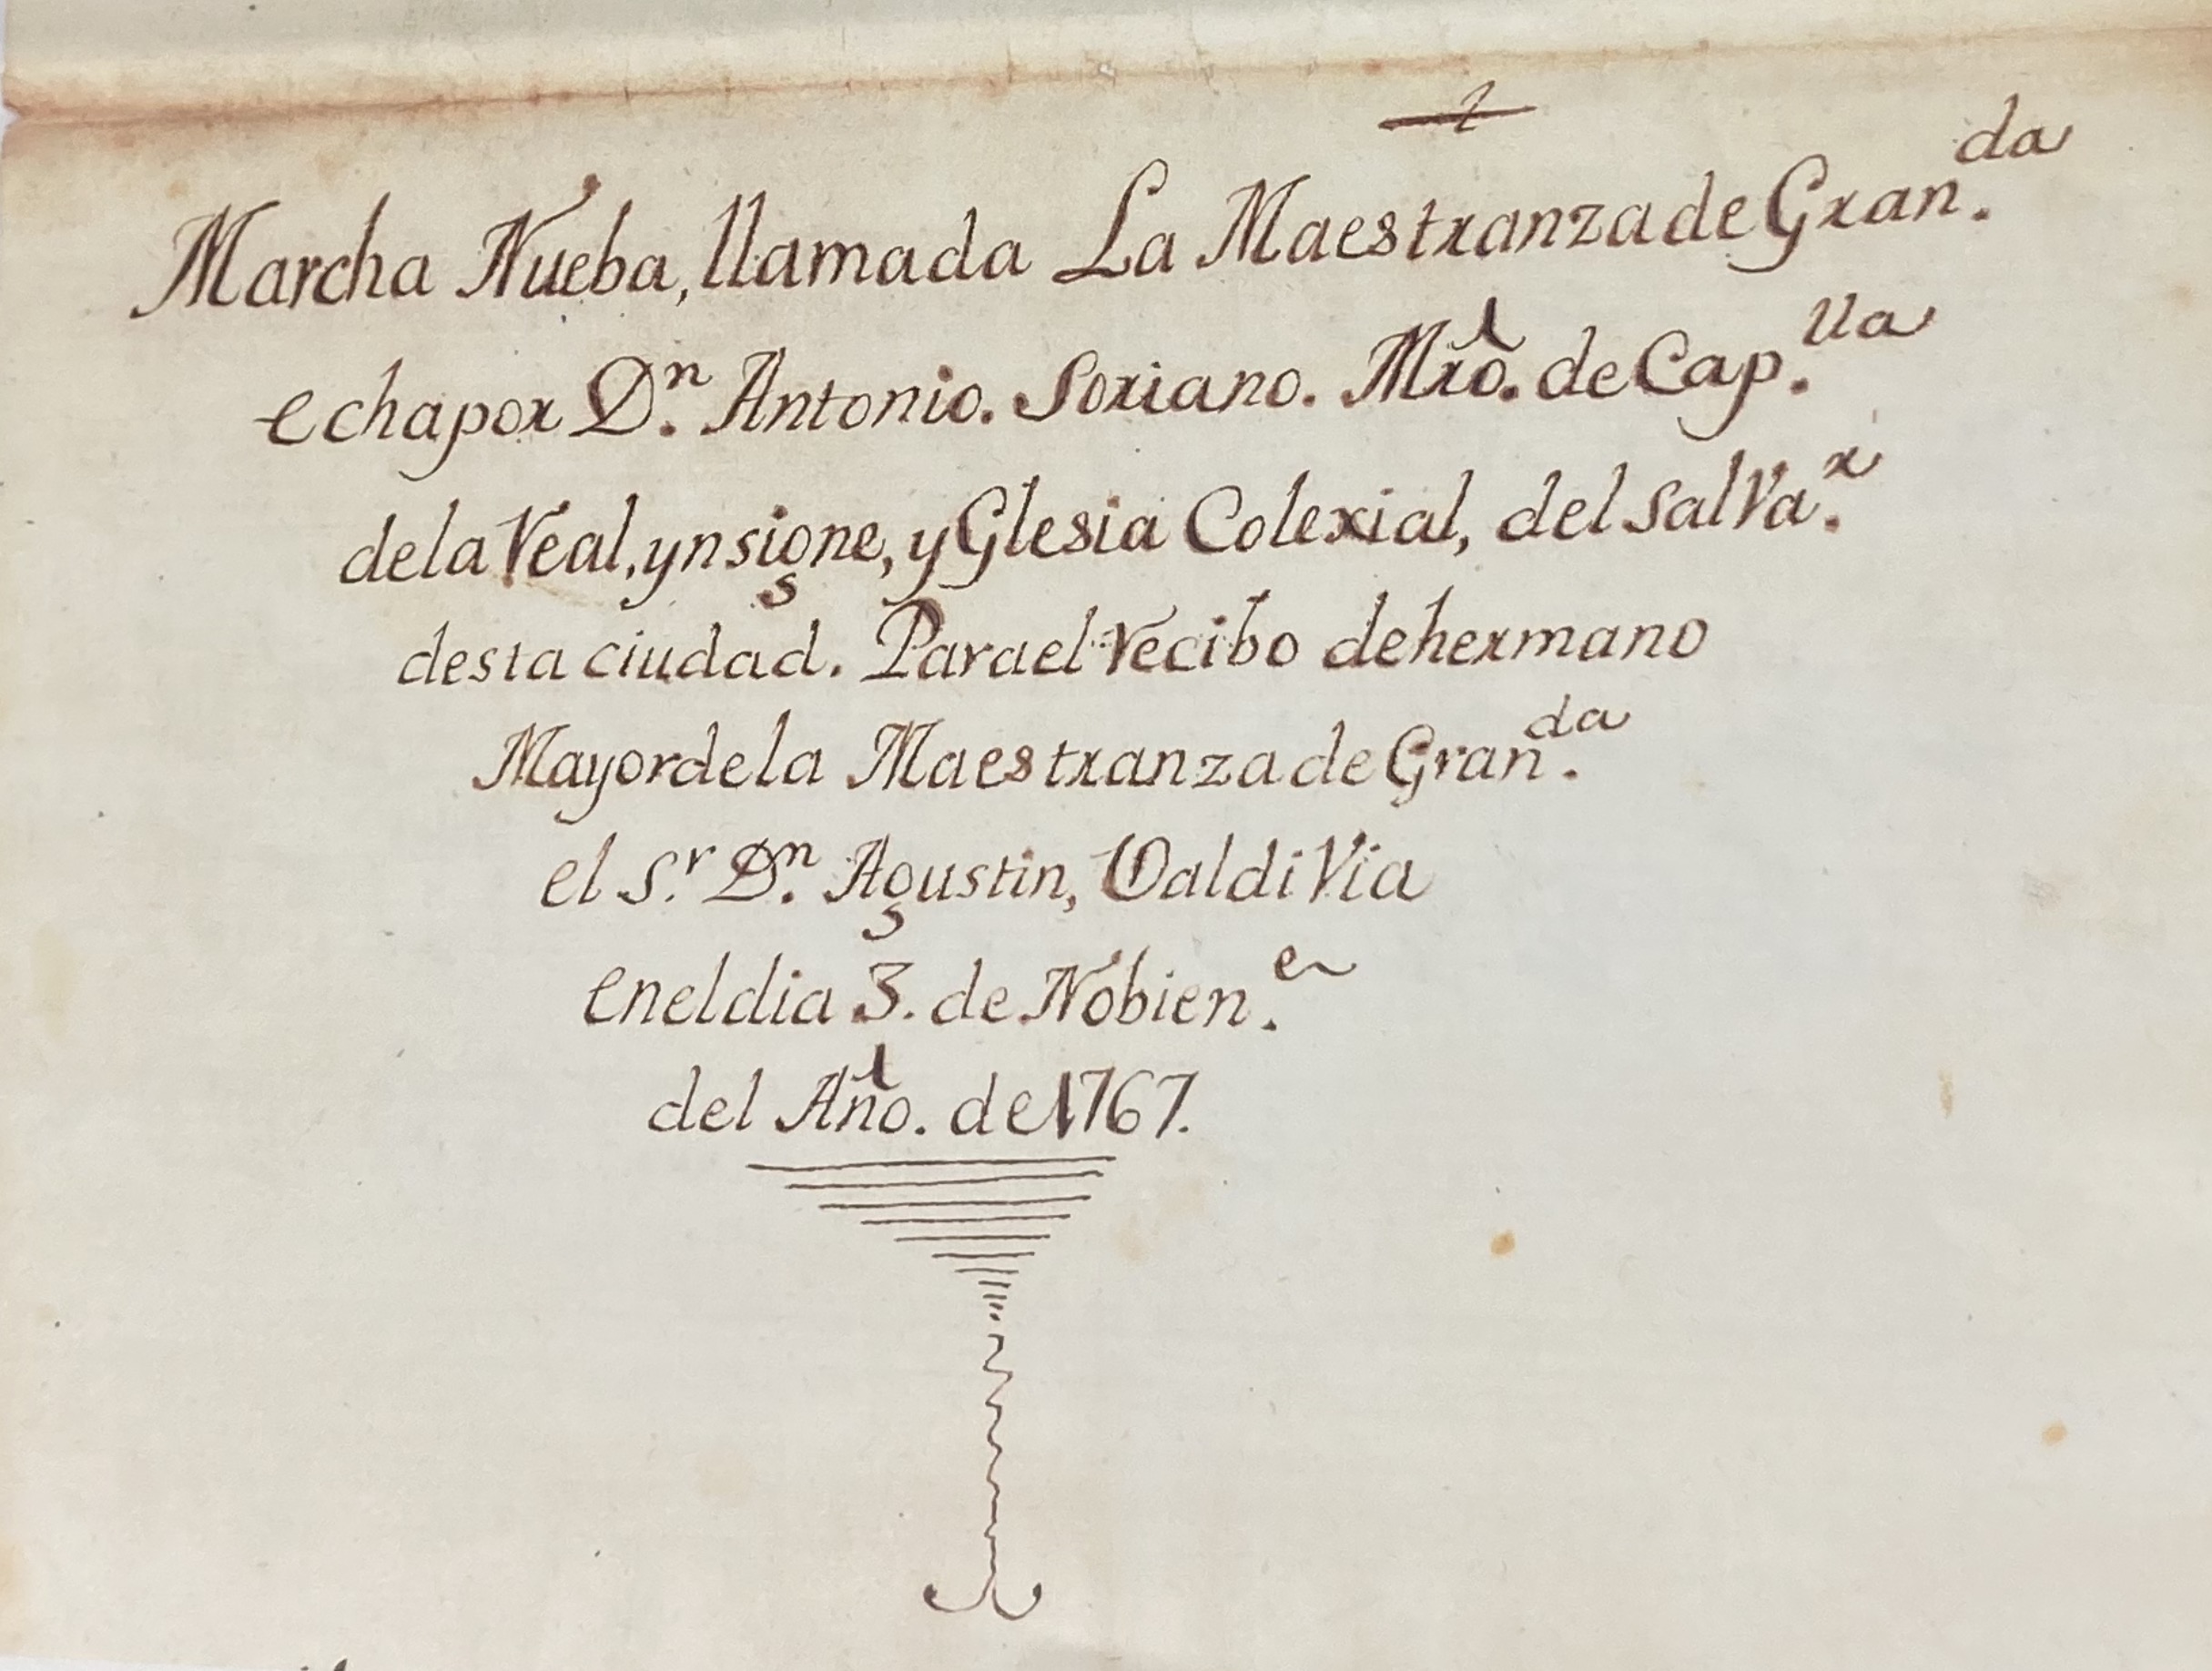 Marcha Nueba, llamada La Maestranza de Gran.da
echa por D.n Antonio. Soriano. Mrõ. de Cap.lla
de la Real, ynsigne, y Glesia Colexial, del Salva.r
desta ciudad. Para el recibo de hermano
Mayor de la Maestranza de Gran.da
el S.r D.n Agustin, Valdivia
en el dia 3. de Nobien.e
del Año. de 1767.